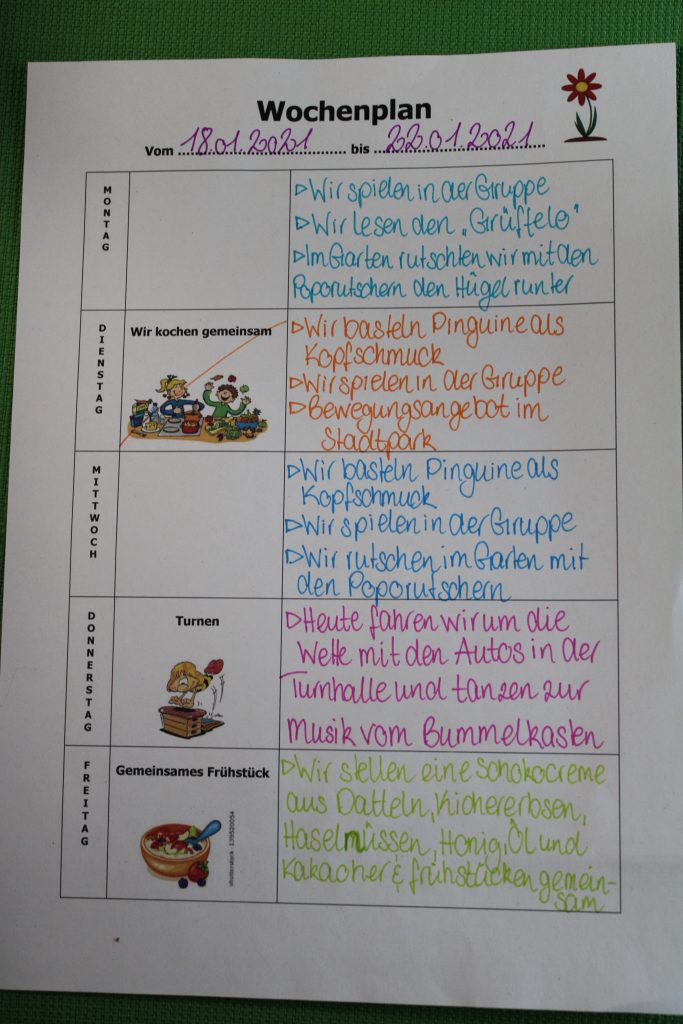 Wochenplan
Vom 18.01.2021 bis 22.01.2021
MONTAG
▷Wir spielen in der Gruppe
▷Wir lesen den „Grüffelo"
▷Im Garten rutschten wir mit den
Poporutschern den Hügel runter
DIENSTAG
Wir kochen gemeinsam
▷Wir basteln Pinguine als
Kopfschmuck
▷Wir spielen in der Gruppe
▷Bewegungsangebot im
Stadtpark
MITTWOCH
▷Wir basteln Pinguine als
Kopfschmuck
▷Wir spielen in der Gruppe
▷Wir rutschen im Garten mit
den Poporutschern
DONNERSTAG
Turnen
▷Heute fahren wir um die
Wette mit den Autos in der
Turnhalle und tanzen zur
Musik vom Bummelkasten
FREITAG
Gemeinsames Frühstück
shutterstock · 139520054
▷Wir stellen eine Schokocreme
aus Datteln, Kichererbsen,
Haselnüssen, Honig, Öl und
Kakao her & frühstücken gemein-
sam